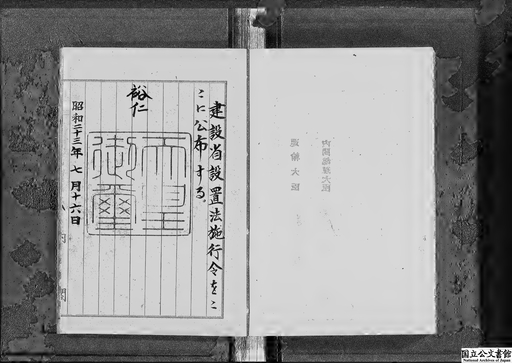 建設省設置法施行令をこ
こに公布する。
裕仁
天皇
御璽
昭和二十三年七月十六日
内閣
内閣総理大臣
運輸大臣
国立公文書館
National Archives of Japan